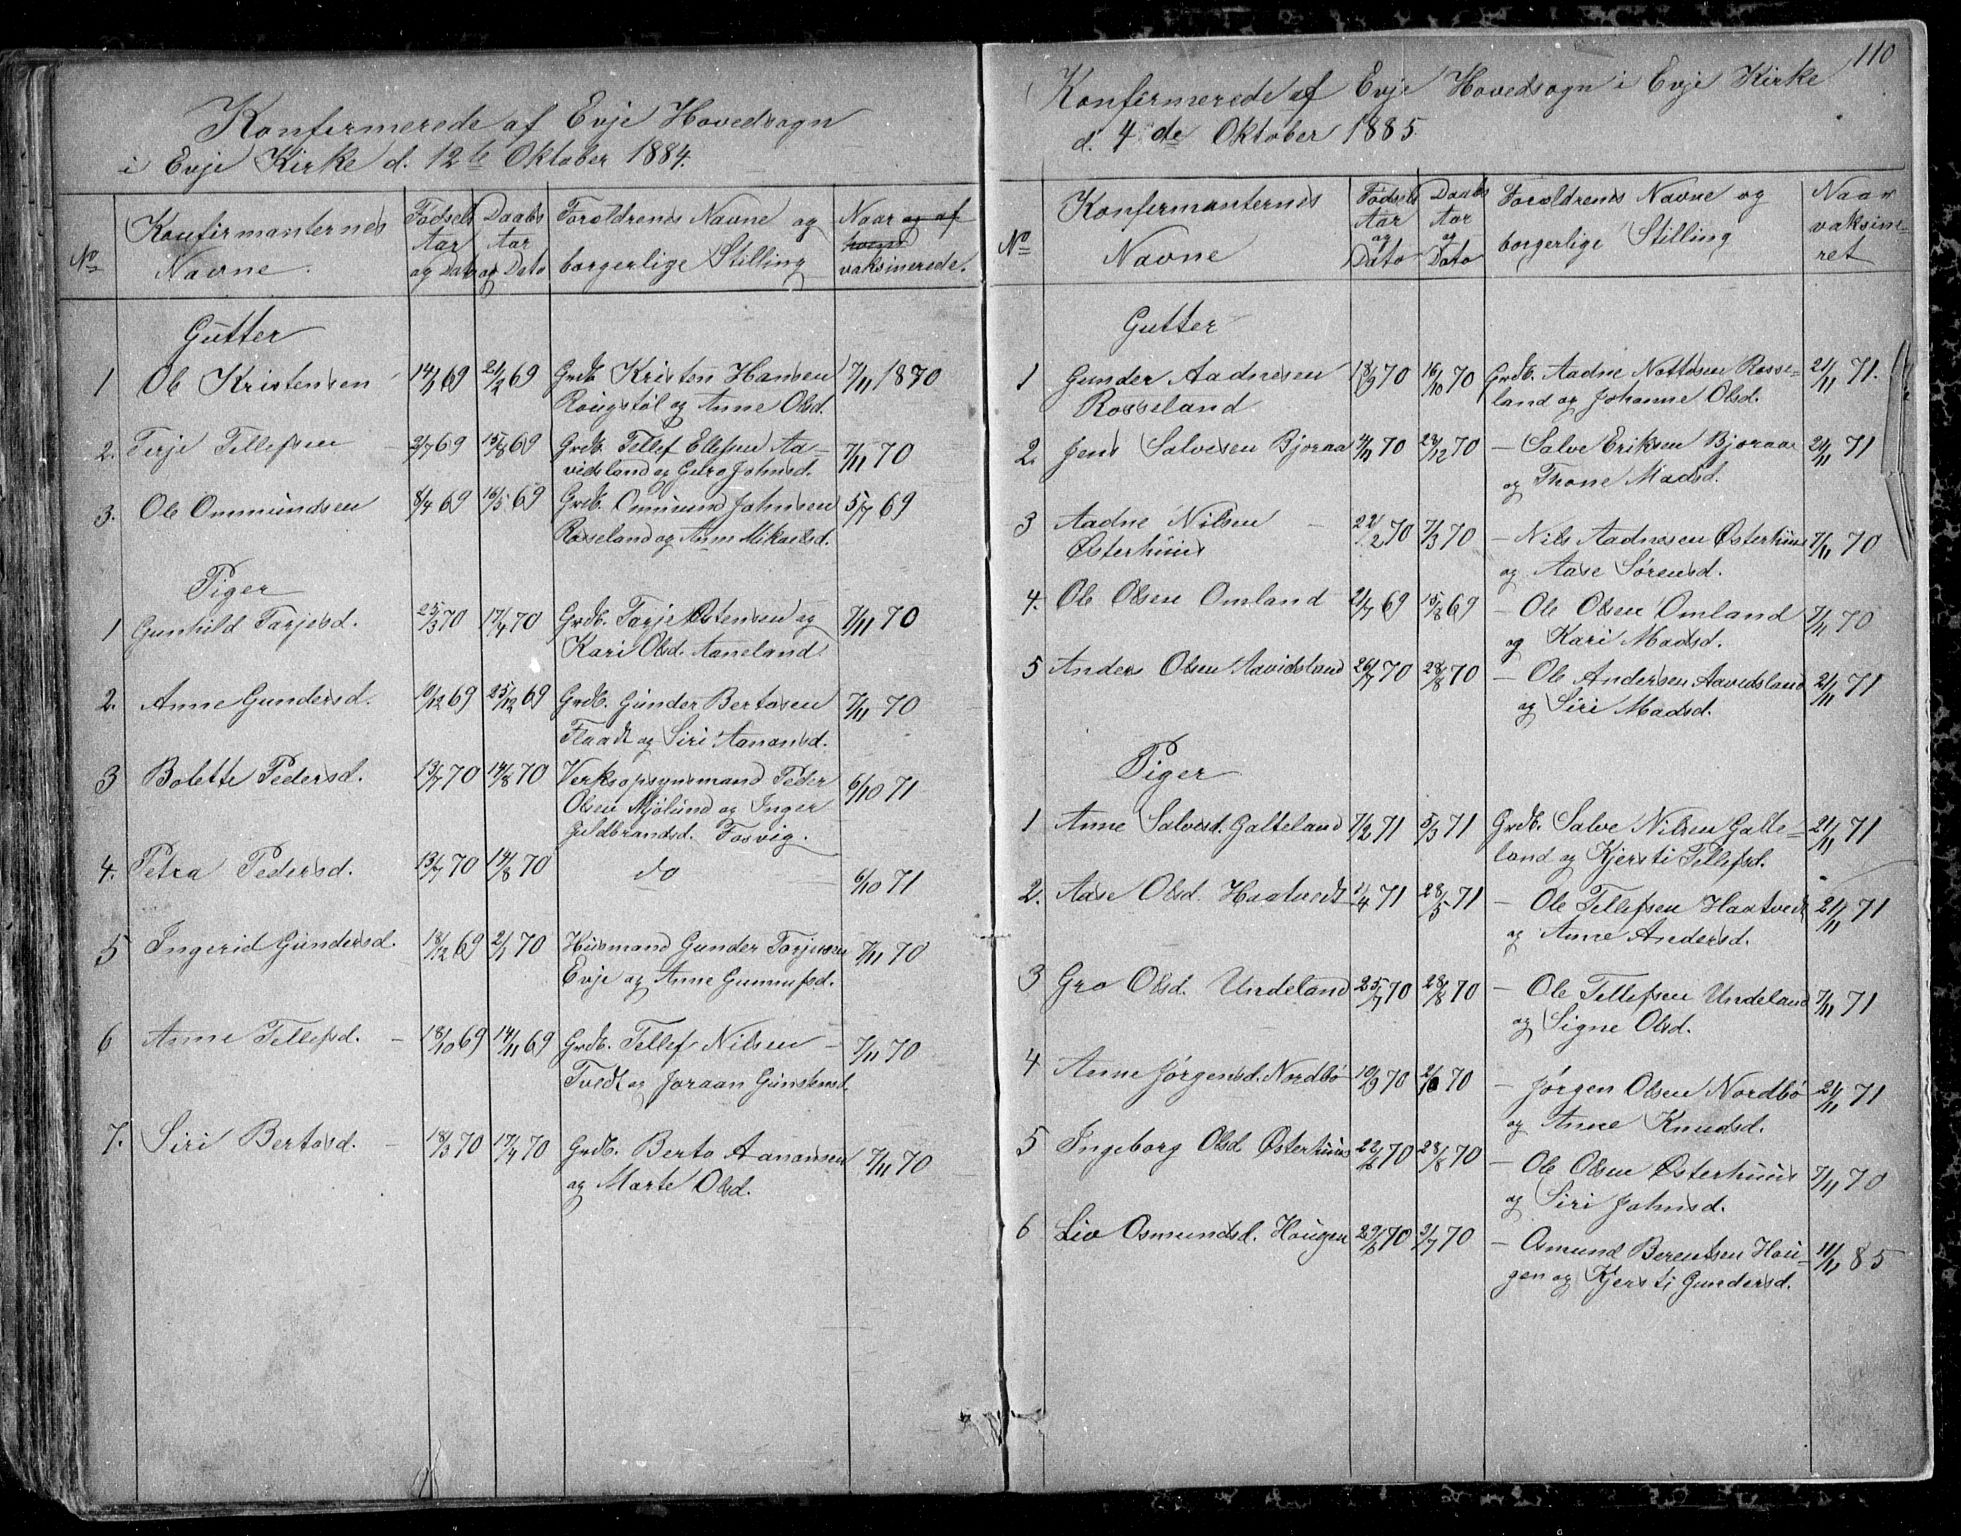 Konfirmerede af Evje Hovedsogn
i Evje Kirke d. 12te Oktober 1884.
No
Konfirmanternes
Navne.
Fødsels
Aar
og Dato
Daabs
Aar
og Dato
Forældrenes Navne og
borgerlige Stilling
Naar og af
vaksinerede.
Gutter
1 Ole Kristensen 14/1 69 21/2 69 Grdb. Kristen Hansen 7/11 1870
Rougstøl og Anne Olsd.
2. Terje Tellefsen 2/7 69 15/8 69 Grdb. Tellef Ellefsen Aa-
vidsland og Guro Johnsd. 7/11 70
3. Ole Ommundsen 8/4 69 16/5 69 Grdb. Ommund Johnsen 5/7 69
Rosseland og Anne Mikaelsd.
Piger
1 Gunhild Tarjesd. 25/3 70 17/4 70 Grdb. Tarje Østensen og 7/11 70
Kari Olsd. Aaneland
2. Anne Gundersd. 10/12 69 25/12 69 Grdb. Gunder Bertosen 7/11 70
Flaadt og Siri Aanonsd.
3 Bolette Pedersd. 13/7 70 14/8 70 Verksopsynsmand Peder
Olsen Mjølund og Inger 6/10 71
Juldbrandsd. Fosvig.
4. Petra Pedersd. 13/7 70 14/8 70 do 6/10 71
5 Ingerid Gundersd. 18/12 69 2/1 70 Husmand Gunder Torjusen 7/11 70
Evje og Anne Gunnufsd.
6 Anne Tellefsd. 18/10 69 14/11 69 Grdb. Tellef Nilsen 7/11 70
Tvedt og Joraan Gunstensd.
7. Siri Bertosd. 18/3 70 17/4 70 Grdb. Berto Aanonsen 7/11 70
og Marte Olsd.
110
Konfirmerede af Evje Hovedsogn i Evje Kirke
d. 4de Oktober 1885
No
Konfirmanternes
Navne
Fødsels
Aar
og
Dato
Daabs
Aar
og
Dato
Forældrenes Navne og
borgerlige Stilling
Naar
vaksine-
ret
Gutter
1 Gunder Aadnesen 18/9 70 16/10 70 Grdb. Aadne Nottosen Rosse- 21/11 71.
Rosseland land og Johanne Olsd.
2. Jens Salvesen Bjoraa 4/11 70 28/12 70 – Salve Eriksen Bjoraa 21/11 71
og Thone Madsd.
3 Aadne Nilsen 22/2 70 7/3 70 – Nils Aadnesen Østerhuus 7/11 70
Østerhuus og Aase Sørensd.
4. Ole Olsen Omland 21/7 69 15/8 69 – Ole Olsen Omland 7/11 70
og Kari Madsd.
5 Anders Olsen Aavidsland 26/7 70 28/8 70 – Ole Andersen Aavidsland 21/11 71
og Siri Madsd.
Piger
1 Anne Salvesd. Galteland 7/2 71 5/3 71 Grdb. Salve Nilsen Galte- 21/11 71
land og Kjersti Tellefsd.
2. Aase Olsd. Haatvedt 1/4 71 28/5 71 – Ole Tellefsen Haatvedt 21/11 71
og Anne Andersd.
3 Gro Olsd. Undeland 25/7 70 28/8 70 – Ole Tellefsen Undeland 7/11 71
og Signe Olsd.
4 Anne Jørgensd. Nordbø 10/9 70 2/10 70 – Jørgen Olsen Nordbø 21/11 71
og Anne Knudsd.
5 Ingeborg Olsd Østerhuus 22/6 70 28/8 70 – Ole Olsen Østerhuus 7/11 70
og Siri Johnsd.
6 Liv Osmundsd. Hougen 29/6 70 3/7 70 – Osmund Berentsen Hou- 11/11 85
gen og Kjersti Gundersd.